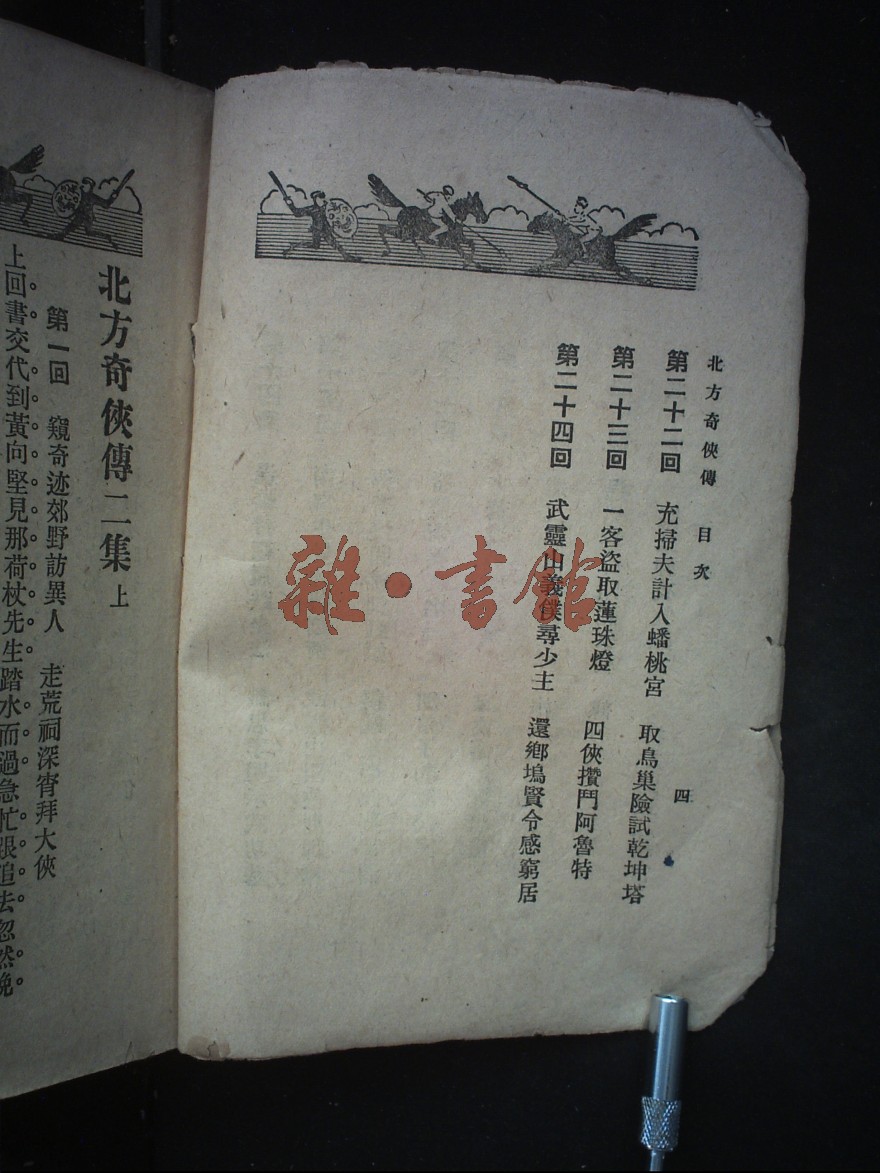 北方奇俠傳 目次 四
第二十二回 充掃夫計入蟠桃宮 取鳥巢險試乾坤塔
第二十三回 一客盜取蓮珠燈 四俠攢鬥阿魯特
第二十四回 武靈山義僕尋少主 還鄉塢賢令感窮居
北方奇俠傳二集 上
第一回 窺奇迹郊野訪異人 走荒祠深宵拜大俠
上回書交代到黃向堅見那荷杖先生踏水而過急忙跟追去忽然
雜·書館